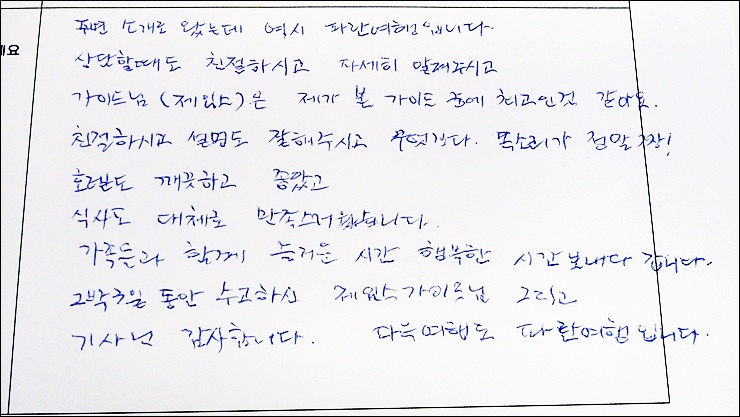 주변 소개로 왔는데 역시 파란여행입니다.
상담할때도 친절하시고 자세히 알려주시고
가이드님 (제임스)은 제가 본 가이드 중에 최고인것 같아요.
친절하시고 설명도 잘해주시고 무엇보다 목소리가 정말 짱!
깨끗하고 좋았고
식사도 대체로 만족스러웠습니다.
가족들과 함께 즐거운 시간 행복한 시간 보내다 갑니다.
2박3일 동안 수고하신 제임스가이드님 그리고
기사님 감사합니다. 다음여행도 파란여행입니다.